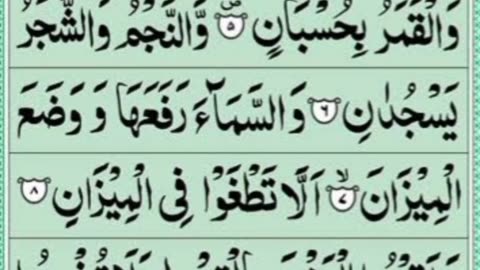 وَالْقَمَرُ بِحُسْبَانٍ ۝۵ وَّالنَّجْمُ وَالشَّجَرُ
يَسْجُدٰنِ ۝۶ وَالسَّمَآءَ رَفَعَهَا وَ وَضَعَ
الْمِيْزَانَ ۝۷ اَلَّا تَطْغَوْا فِي الْمِيْزَانِ ۝۸